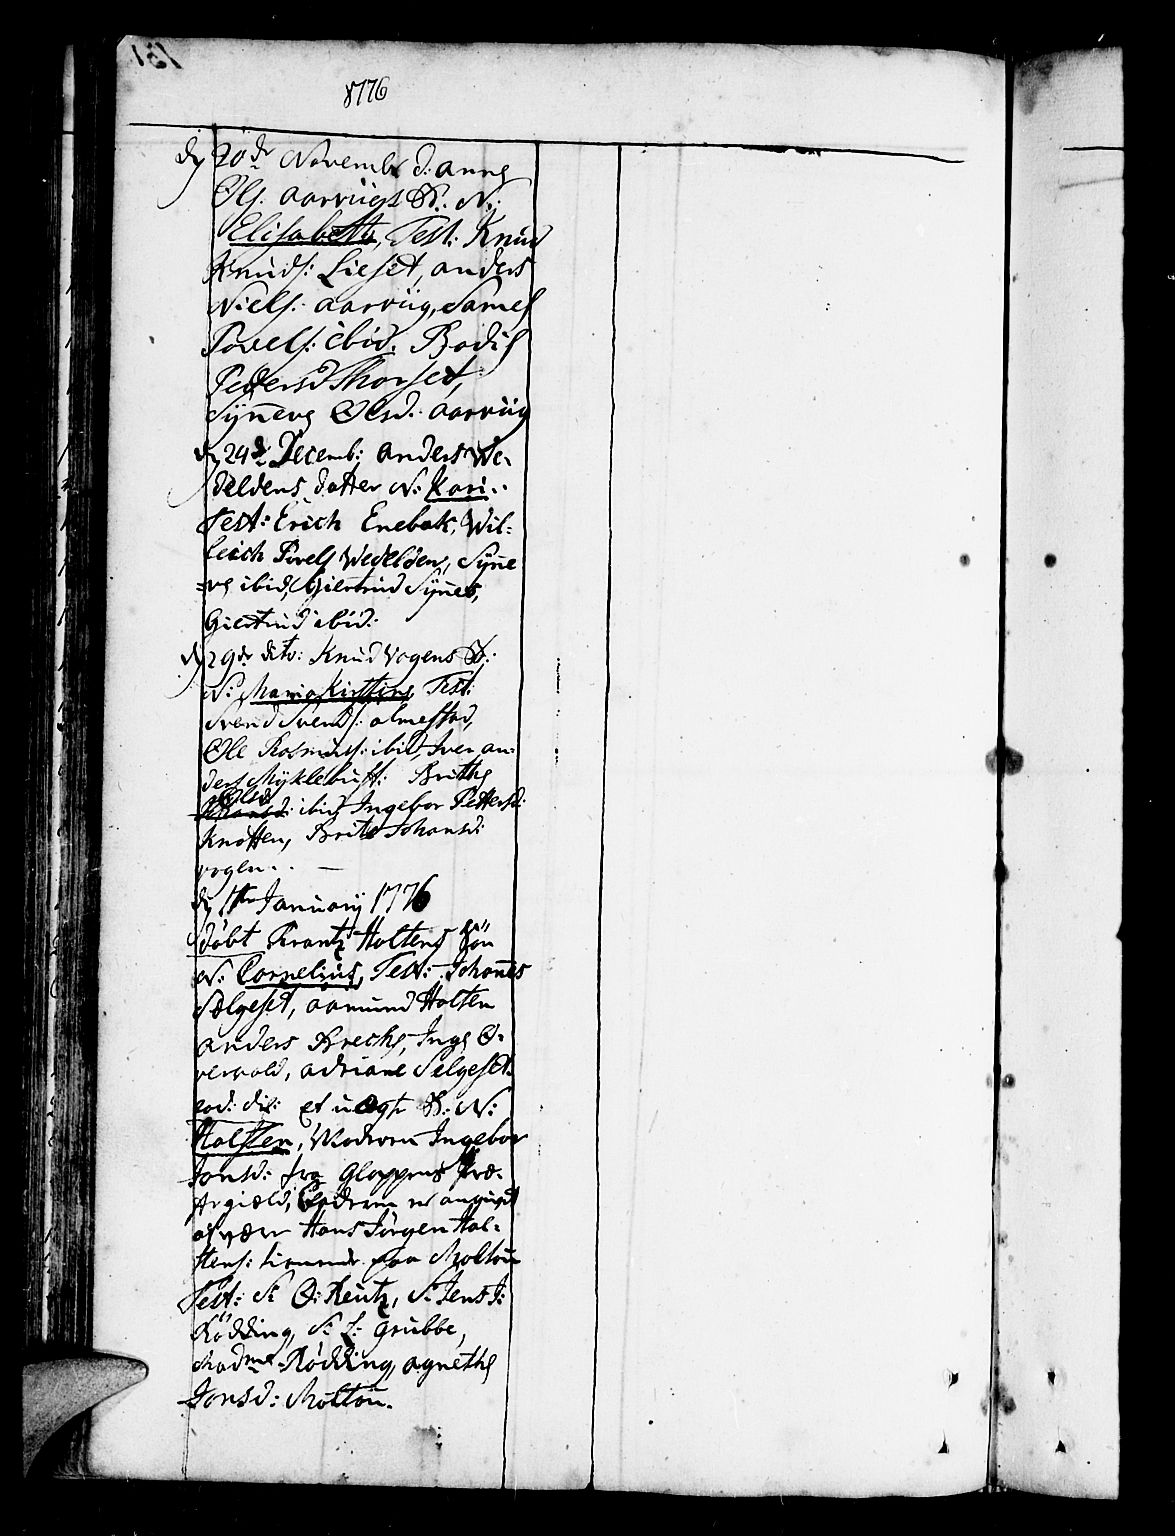 1776
dn 20de Novembr d: anne
Ols. aarviigs B. N:
Elisabeth, Test: Knud
Knuds: Lieset, anders
Niels: aarviig, Samel
Povels: ibid. Bodil
Pedersd Thorset,
Sÿneve Olsd: aarviig
dn 24de Decemb: anders We-
deldens datter N: Kari..
Test: Erich Enebak, Wil-
leich Povels Wedelden, Sÿne
-ve ibid, Giertrud Sÿnes,
Giertrud ibid:
dn 29de dito: Knud Vogens B:
N: Maria Kirstine Test:
Svend Svends: almestad,
Ole Rasmus: ibid, Iver an-
ders Mÿklebust: Brithe
Olsd
ibid, Ingebor Pettersd:
Knotten, Brite Johansd:
vogen..
dn 1te Januarÿ 1776
döbt Frantz Holtens Sön
N: Cornelius, Test: Johanes
Sælgeset, aamund Holten
anders Brechs, Inge O-
vervold, adriane Selgeset.
eod: die: et uægte B: N:
Holsten, Moderen Ingebor
Jonsd: fra Gloppens Præ-
stegiæld, Faderen er angivet
at være Hans Jörgen Hol-
stens: tienende paa Moltöu
Test: Sr O: Kentz, Sr Jens J:
Rödding, Sr L: Grubbe,
Madme Rödding, agnethe
Jonsd: Moltöu.